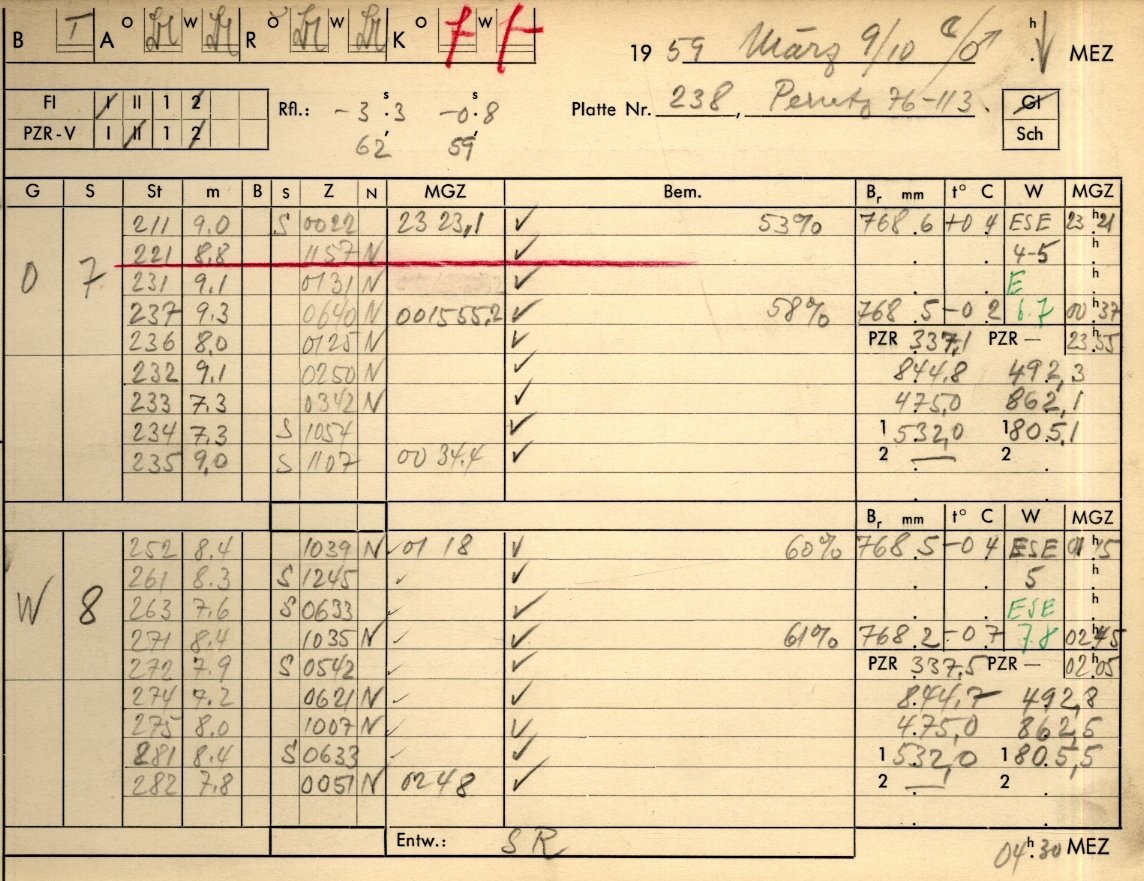 B T A O W R O W K O W 19 59 März 9/10 h MEZ
FI I II 1 2 Rfl.: -3.3 s -0.8 s Platte Nr. 238, Perutz 76-113. GI
PZR-V I II 1 2 62 59 Sch
G S St m B S Z N MGZ Bem. Br mm t° C W MGZ
0 7
211 9.0 S 0022 23 23,1 ✓ 53% 768.6 +0.4 ESE 23h21
221 8.8 1157 N ✓ . . 4-5 h
231 9.1 0131 N ✓ . . E h
237 9.3 0640 N 001555,2 ✓ 58% 768.5 -0.2 6.7 00h37
236 8,0 0125 N ✓ PZR 337,1 PZR — 23.55
232 9.1 0250 N ✓ 844,8 492,3
233 7.3 0342 N ✓ 475,0 862,1
234 7,3 S 1054 ✓ 1 532,0 1 805,1
235 9,0 S 1107 00 34.4 ✓ 2 — 2 .
Br mm t° C W MGZ
W 8
252 8.4 1039 N 01 18 ✓ 60% 768.5 -0.4 ESE 01h15
261 8.3 S 1245 ✓ ✓ . . 5 h
263 7.6 S 0633 ✓ ✓ . . ESE h
271 8.4 1035 N ✓ ✓ 61% 768.2 -0.7 7.8 02h45
272 7.9 S 0542 ✓ ✓ PZR 337,5 PZR — 02.05
274 7.2 0621 N ✓ ✓ 844,7 492,8
275 8.0 1007 N ✓ ✓ 475,0 862,5
281 8.4 S 0633 ✓ ✓ 1 532,0 1 805,5
282 7.8 0051 N 0248 ✓ 2 — 2 .
Entw.: SR 04h.30 MEZ